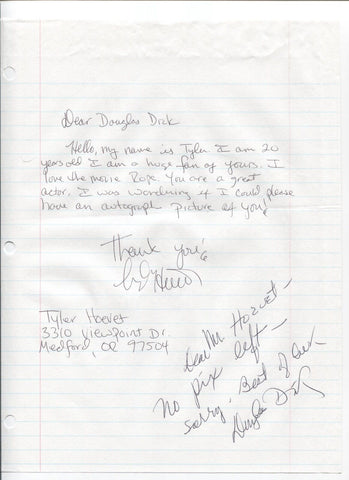 Dear Douglas Dick
Hello, my name is Tyler I am 20
years old I am a huge fan of yours. I
love the movie Rope. You are a great
actor. I was wondering if I could please
have an autograph picture of you!
Thank you!
Tyler Hoevet
3310 Viewpoint Dr.
Medford, OR 97504
Dear Mr Hoevet-
No pix left-
sorry. Best of luck
Douglas Dick